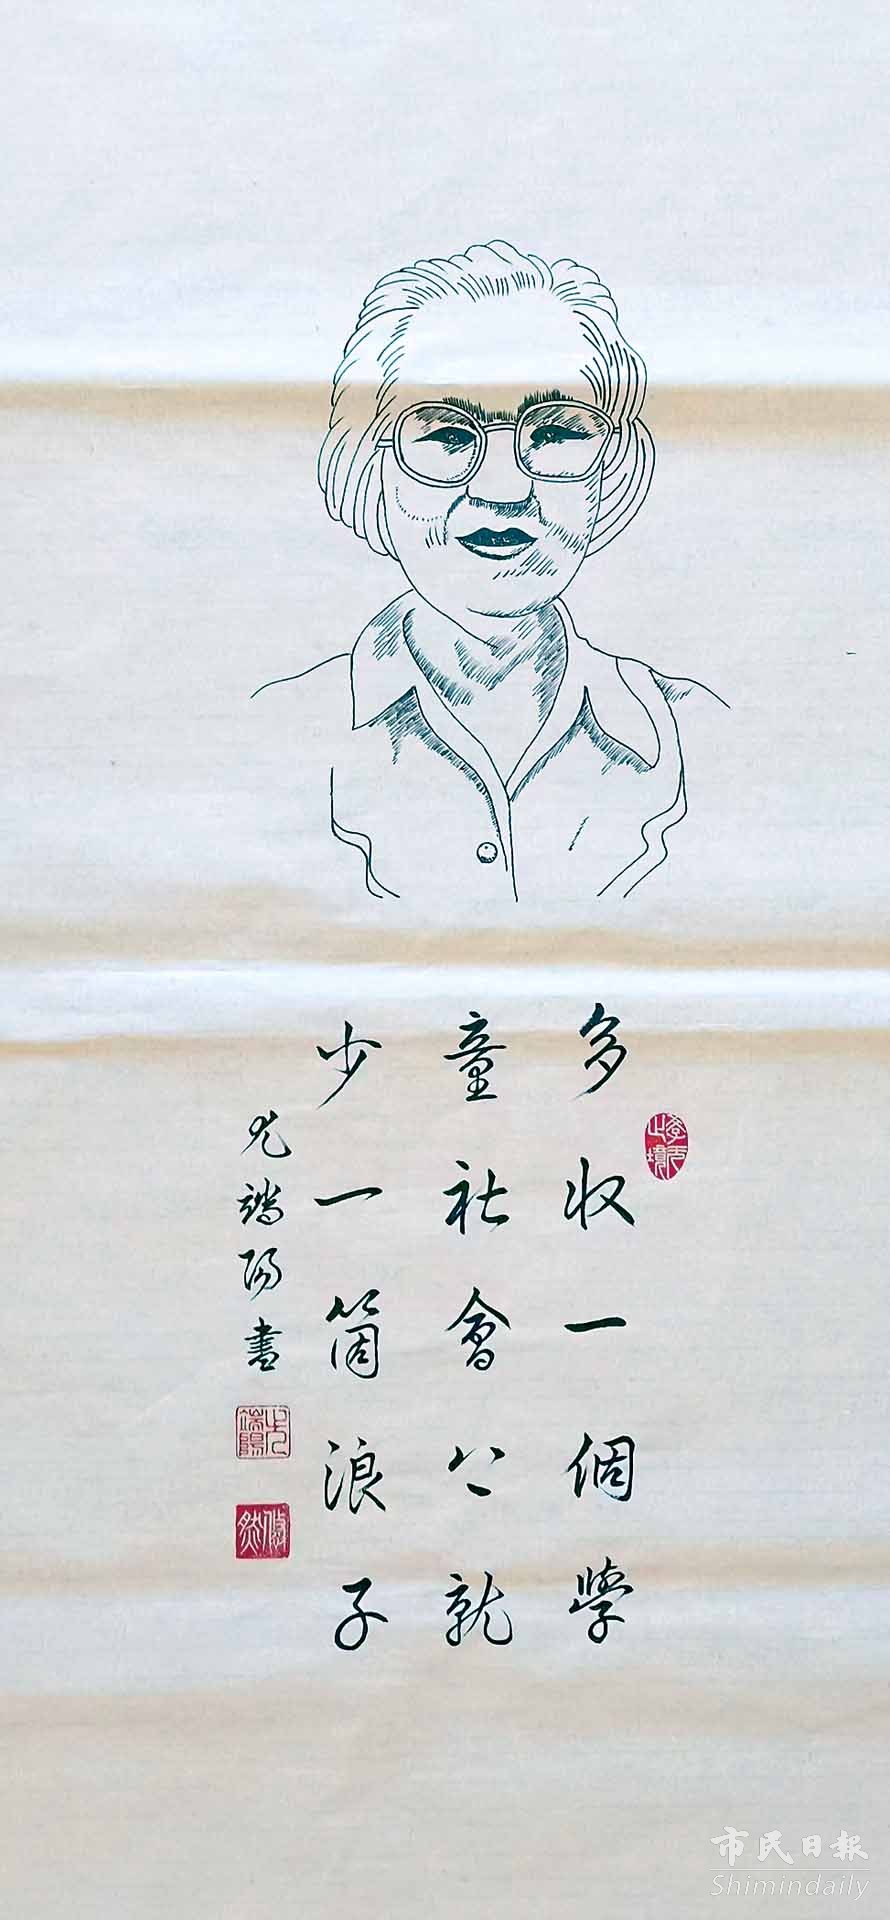 多收一個學
童社會上就
少一箇浪子
尤端陽書
尤端陽
市民日報
Shimindaily